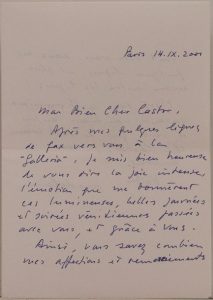 Paris 14.IX.2001
Mon Bien Cher Castro,
Après mes quelques lignes
de fax vers vous à la
"Galleria", je suis bien heureuse
de vous dire la joie intense,
l'émotion que me donnèrent
ces lumineuses, belles journées
et soirées vénitiennes passées
avec vous, et grâce à vous.
Ainsi, vous savez combien
mes affections et remerciements